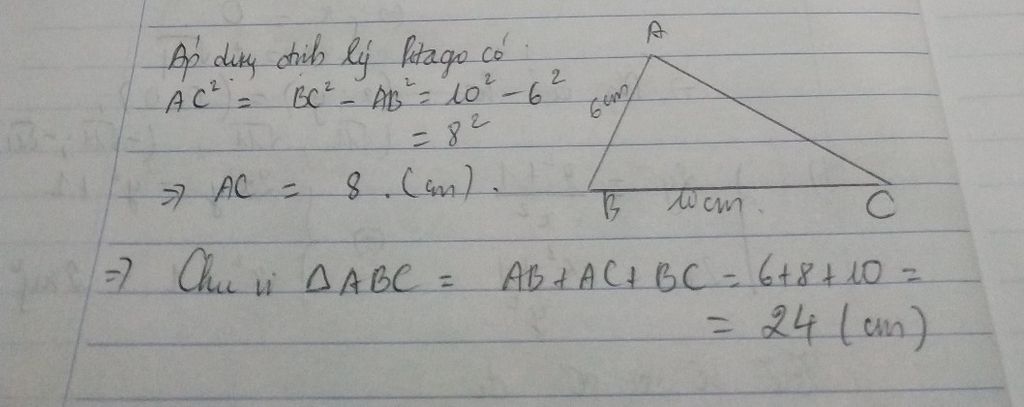 Áp dụng định lý Pitago có:
AC² = BC² - AB² = 10² - 6²
= 8²
⇒ AC = 8 . (cm) .
A
6cm
B 10cm . C
⇒ Chu vi ΔABC = AB + AC + BC = 6+8+10 =
= 24 (cm)